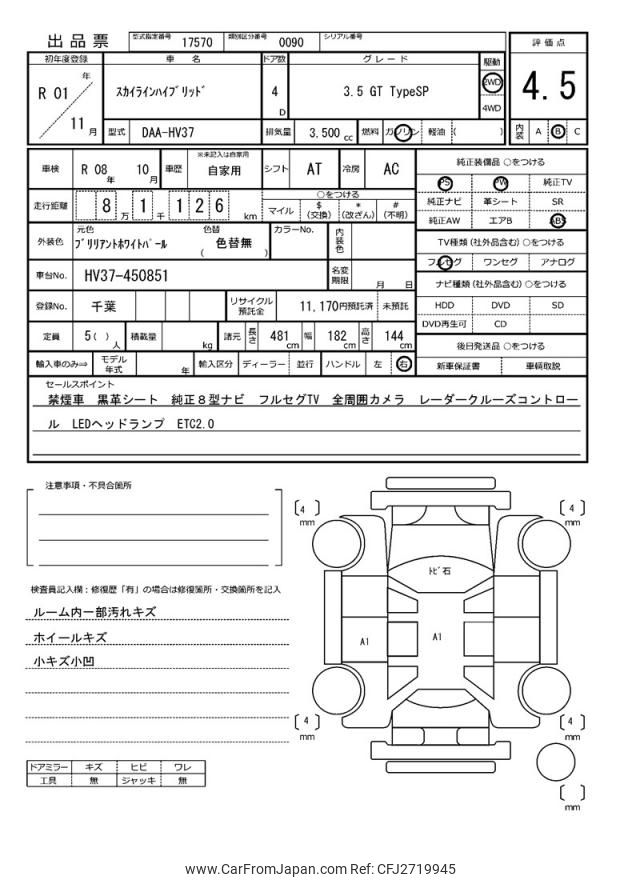 出品票 型式指定番号 17570 類別区分番号 0090 シリアル番号
初年度登録 車名 ドア数 グレード 駆動 評価点
R 01 年 11 月 スカイラインハイブリッド 4 D 3.5 GT TypeSP 2WD 4WD 4.5
型式 DAA-HV37 排気量 3,500 cc 燃料 ガソリン 軽油 ( ) 内装 A B C
車検 R 08 年 10 月 車歴 ※未記入は自家用 自家用 シフト AT 冷房 AC
走行距離 8 万 1 千 1 2 6 km ○をつける マイル $ (交換) * (改ざん) # (不明)
外装色 元色 ブリリアントホワイトパール 色替 ( 色替無 ) カラーNo. 内装色
車台No. HV37-450851 名変期限 月 日
登録No. 千葉 リサイクル預託金 11,170円預託済 未預託
定員 5( ) 人 積載量 kg 諸元 長さ 481 cm 幅 182 cm 高さ 144 cm
輸入車のみ⇒ モデル年式 年 輸入区分 ディーラー 並行 ハンドル 左 右
純正装備品 ○をつける
PS PW 純正TV
純正ナビ 革シート SR
純正AW エアB ABS
TV種類 (社外品含む) ○をつける
フルセグ ワンセグ アナログ
ナビ種類 (社外品含む) ○をつける
HDD DVD SD
DVD再生可 CD
後日発送品 ○をつける
新車保証書 車輌取説
セールスポイント
禁煙車 黒革シート 純正8型ナビ フルセグTV 全周囲カメラ レーダークルーズコントロー
ル LEDヘッドランプ ETC2.0
注意事項・不具合箇所
検査員記入欄：修復歴「有」の場合は修復箇所・交換箇所を記入
ルーム内一部汚れキズ
ホイールキズ
小キズ小凹
ドアミラー キズ ヒビ ワレ
工具 無 ジャッキ 無
[ 4 ] mm
[ 4 ] mm
トビ石
A1
A1
[ 4 ] mm
[ 4 ] mm
[ ] mm
www.CarFromJapan.com Ref: CFJ2719945